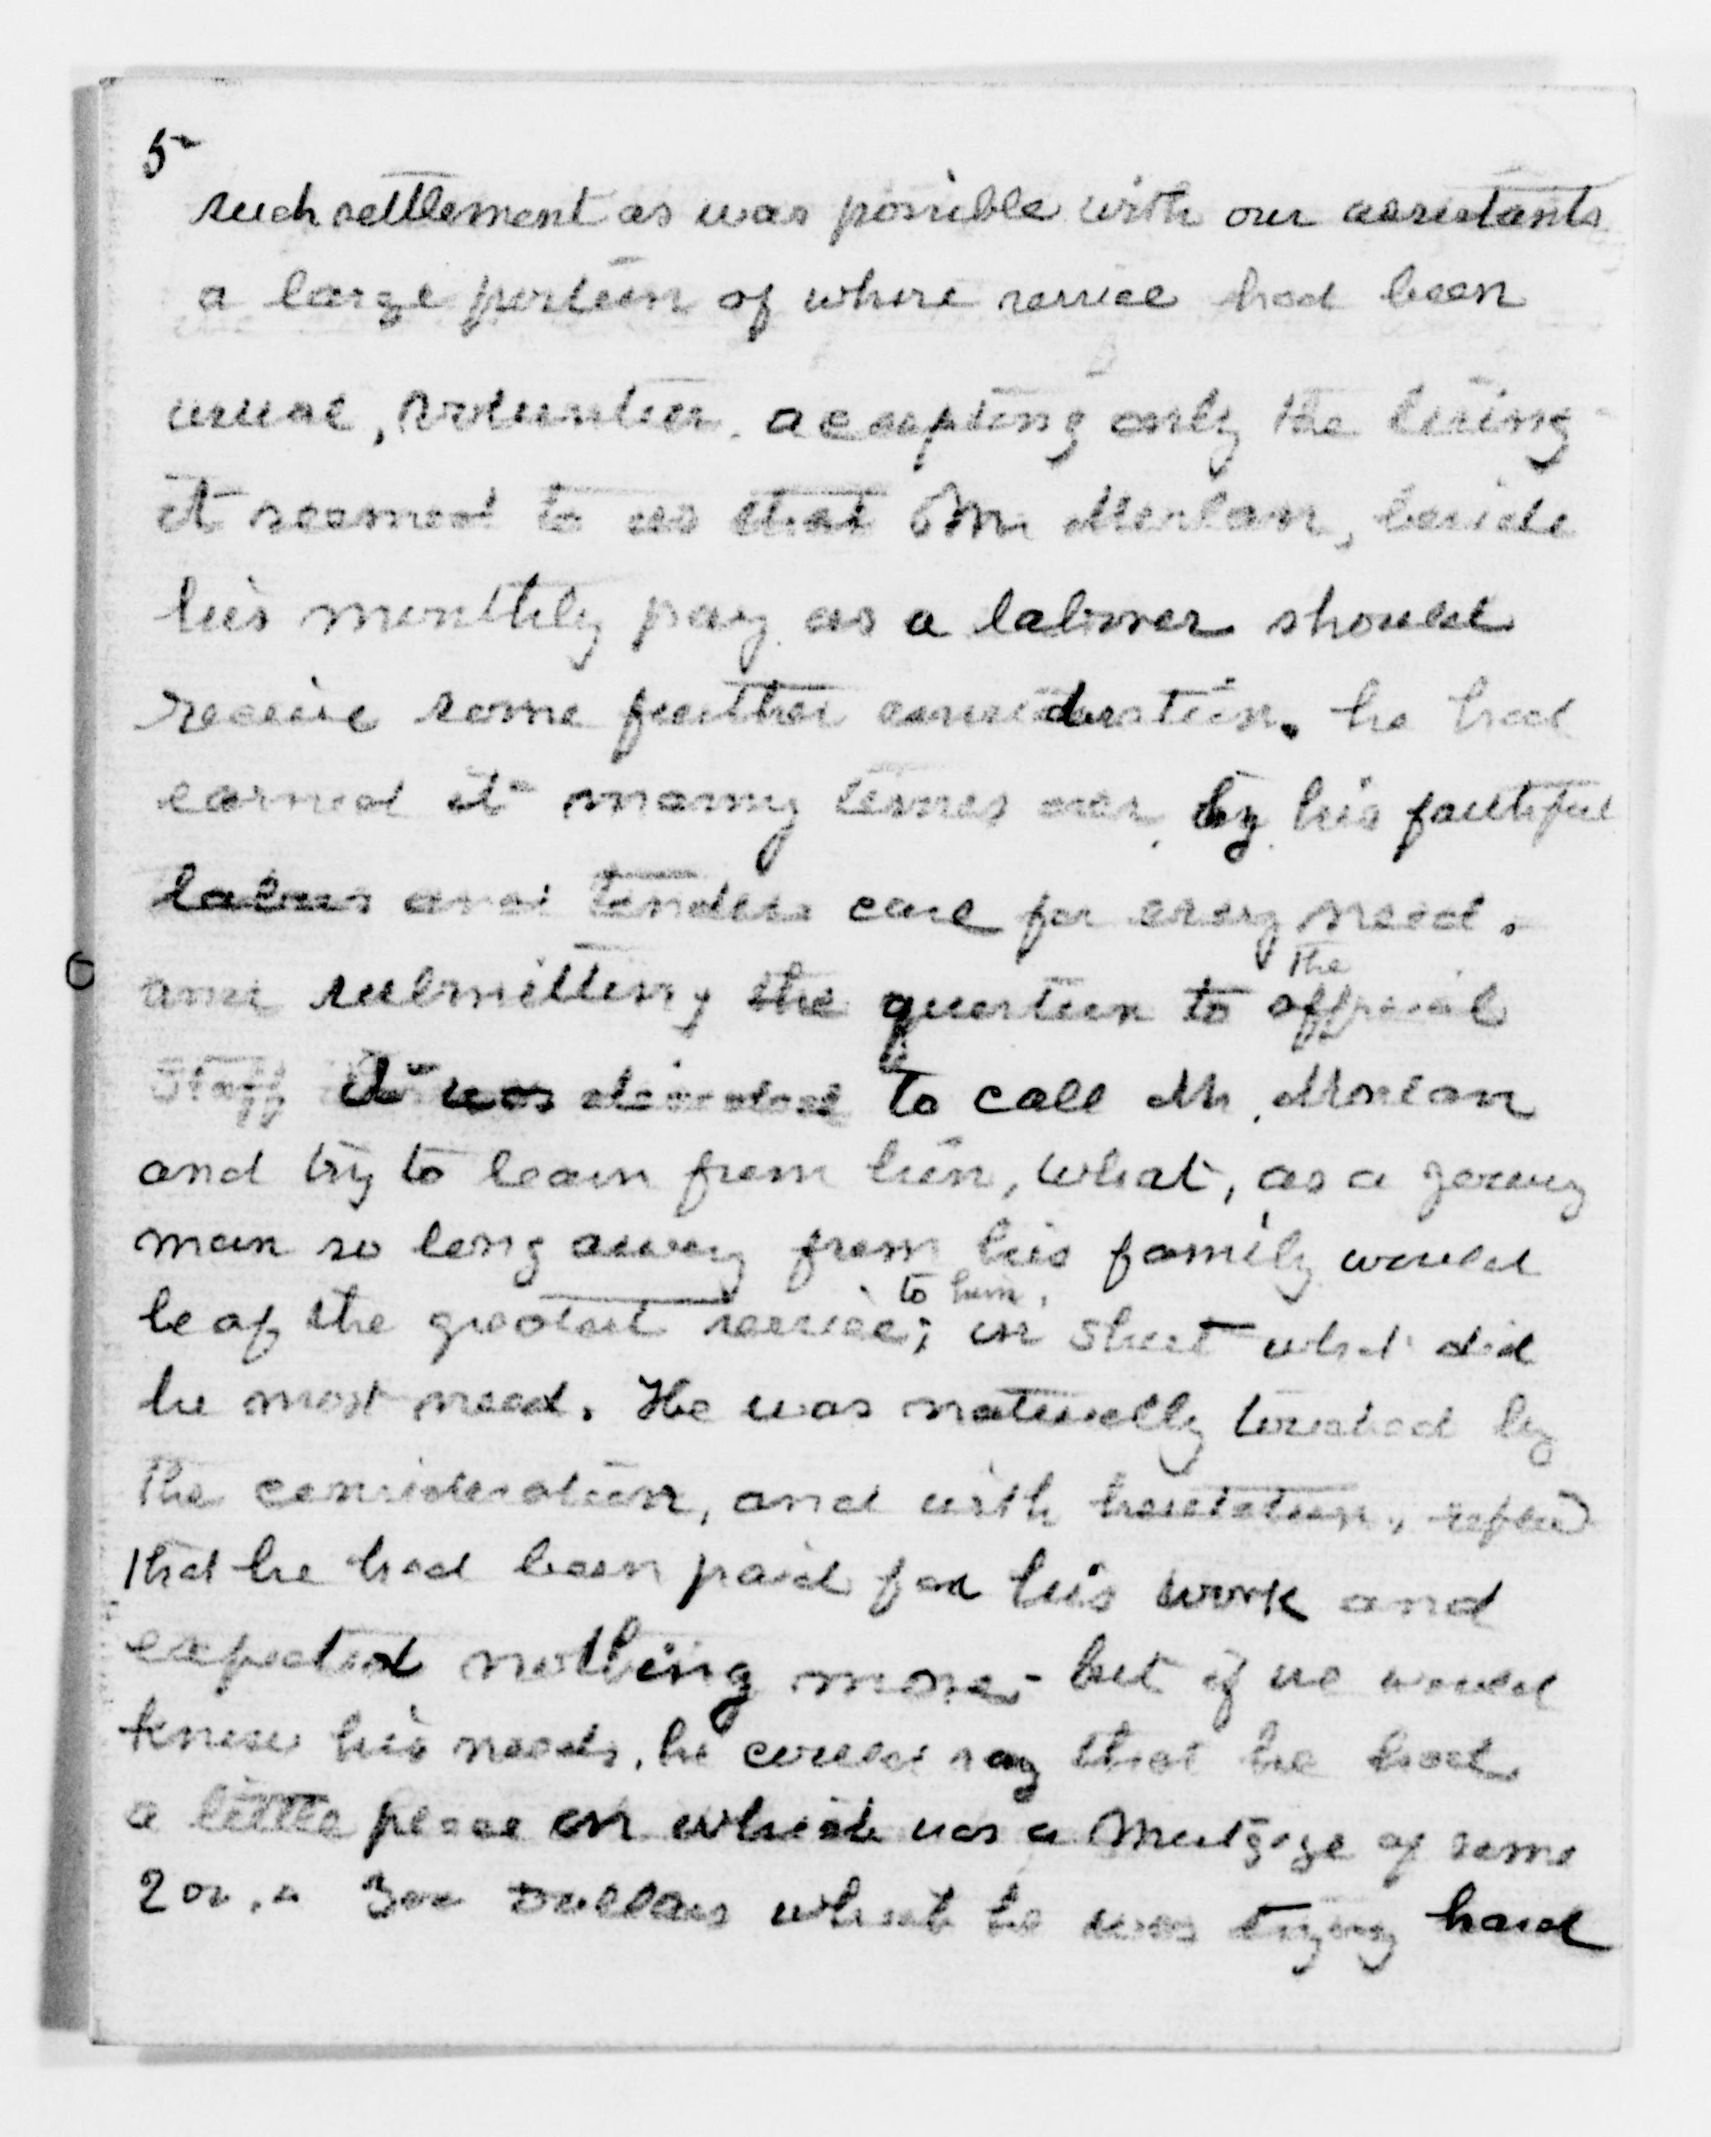 5
such settlement as was possible with our assistants
a large portion of whose service had been
usual, volunteer. accepting only the living
it seemed to us that Mr Morlan, beside
his monthly pay as a laborer should
receive some further consideration. he had
earned it many times over, by his faithful
labors and tender care for every need.
and submitting the question to the official
Staff it was decided to call Mr. Morlan
and try to learn from him, what, as a young
man so long away from his family would
be of the greatest service to him; in short what did
he most need. He was naturally touched by
The consideration, and with hesitation, replied
that he had been paid for his work and
expected nothing more - but if we would
know his needs, he could say that he had
a little place on which was a Mortgage of some
200. a 300 Dollars which he was trying hard